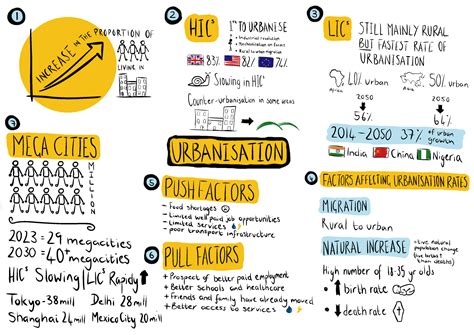 1
INCREASE IN THE PROPORTION OF
LIVING IN
2
HICs
1st TO URBANISE
• Industrial revolution
• Rural to urban migration
83% 82% 72%
Slowing in HICs
Counter-urbanisation in some areas
3
LICs
STILL MAINLY RURAL
BUT FASTEST RATE OF
URBANISATION
Africa
urban
Asia
50% urban
2050
2050
56%
64%
2014-2050 37% of urban growth
India China Nigeria
MEGA CITIES
MILLION
2023 = 29 megacities
2030 = 40+ megacities
HICs Slowing | LICs Rapidly
Tokyo-38mill Delhi 28mill
Shanghai 24mill Mexico City 20mill
URBANISATION
5
PUSH FACTORS
- Food shortages
- Limited well paid job opportunities
- Limited services
- poor transport infrastructure
6
PULL FACTORS
+ Prospect of better paid employment
+ Better schools and healthcare
+ Friends and family have already moved
+ Better access to services
FACTORS AFFECTING URBANISATION RATES
MIGRATION
Rural to urban
NATURAL INCREASE
High number of 18-35 yr olds
birth rate
death rate